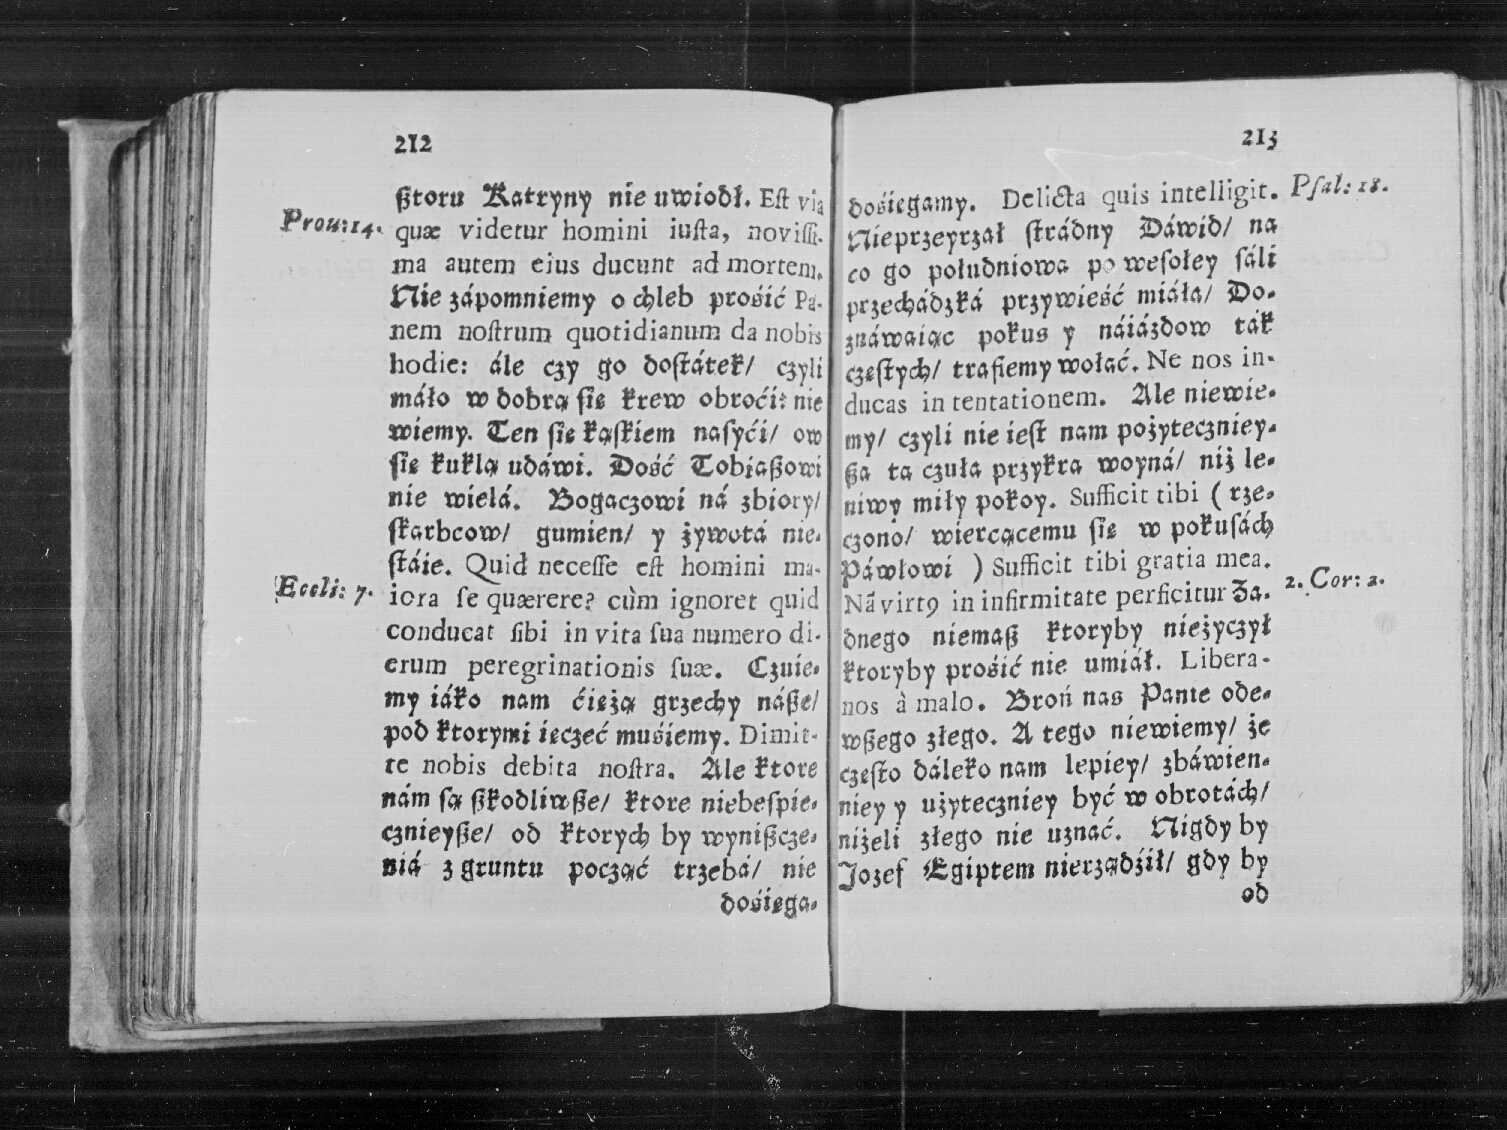 212
ßtoru Katryny nie uwiodł. Eſt via
Prou: 14.
quæ videtur homini iuſta, noviſſi-
ma autem ejus ducunt ad mortem.
Nie zápomniemy o chleb prośić Pa-
nem noſtrum quotidianum da nobis
hodie: ále czy go doſtátek/ czyli
máło w dobrą ſię krew obroći: nie
wiemy. Ten ſię kąſkiem naſyći/ ow
ſię kuklą udáwi. Dość Tobiaßowi
nie wielá. Bogaczowi ná zbiory/
ſkarbcow/ gumien/ y żywotá nie-
ſtáie. Quid neceſſe eſt homini ma-
Eccli: 7.
iora ſe quærere? cùm ignoret quid
conducat ſibi in vita ſua numero di-
erum peregrinationis ſuæ. Czuie-
my iáko nam ćiężą grzechy náße/
pod ktorymi ięczeć muśiemy. Dimit-
te nobis debita noſtra. Ale ktore
nám ſą ßkodliwße/ ktore niebeſpie-
cznieyße/ od ktorych by wynißcze-
niá z gruntu począć trzebá/ nie
dośięga-
213
dośięgamy. Delicta quis intelligit.
Pſal: 18.
Nieprzeyrzał ſtrádny Dáwid/ na
co go południowa po weſołey ſáli
przechádzká przywieść miáła/ Do-
znáwaiąc pokus y náiázdow ták
częſtych/ trafiemy wołać. Ne nos in-
ducas in tentationem. Ale niewie-
my/ czyli nie ieſt nam pożyteczniey-
ßa ta czuła przykra woyná/ niż le-
niwy miły pokoy. Sufficit tibi ( rze-
czono/ wiercącemu ſię w pokuſách
Páwłowi ) Sufficit tibi gratia mea.
2. Cor: 2.
Nã virtꝰ in infirmitate perficitur Ża-
dnego niemaß ktoryby nieżyczył
ktoryby prośić nie umiáł. Libera-
nos à malo. Broń nas Panie ode-
wßego złego. A tego niewiemy/ że
częſto dáleko nam lepiey/ zbáwien-
niey y użyteczniey być w obrotách/
niżeli złego nie uznać. Nigdy by
Jozef Egiptem nierządźił/ gdy by
od